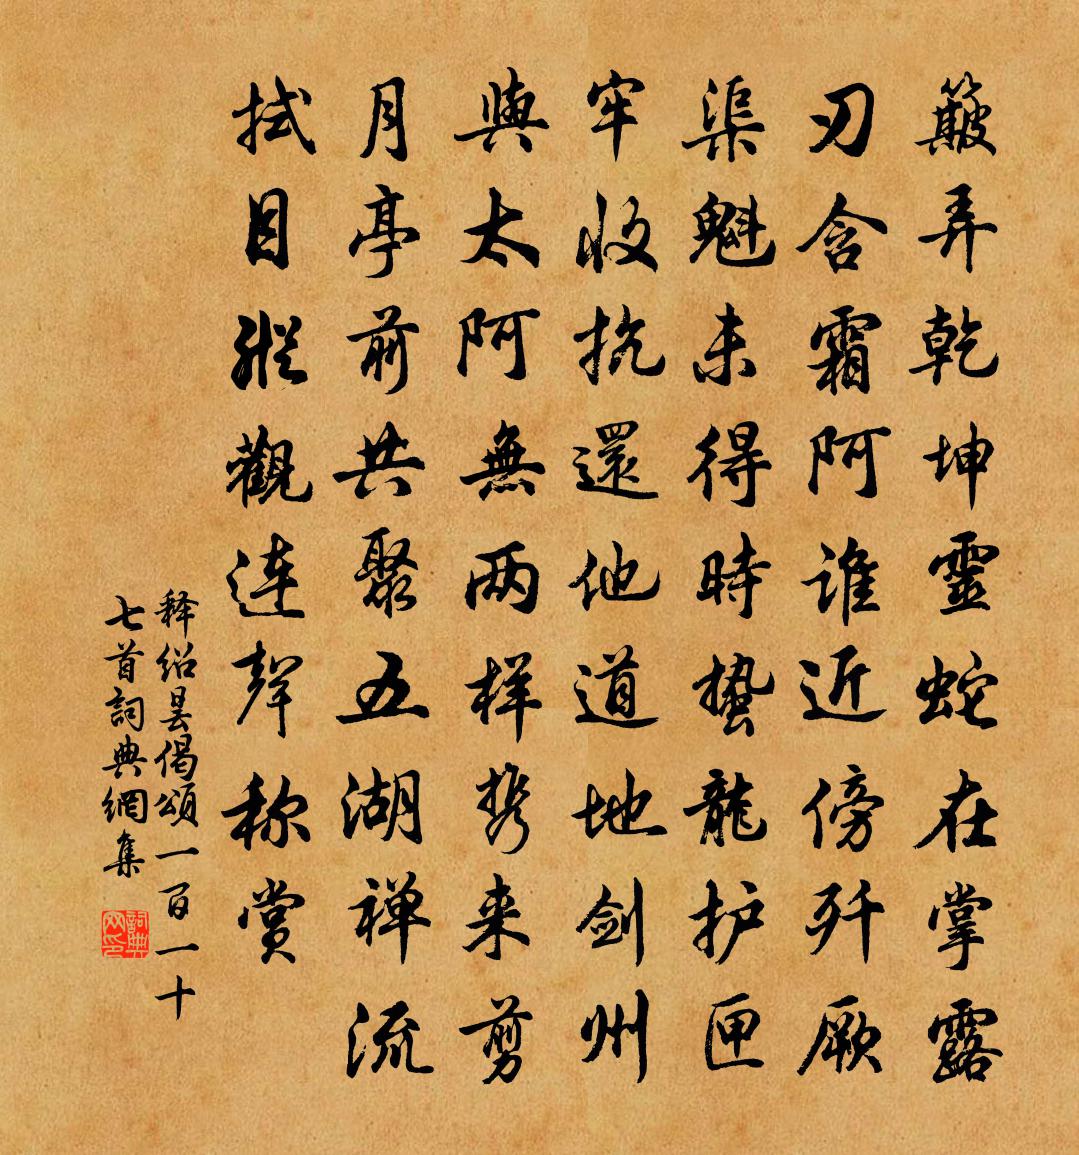 簸弄乾坤靈蛇在掌露
刃含霜阿誰近傍歼厥
渠魁未得時蛰龍护匣
牢收抗還他道地劍州
與太阿無两样携来剪
月亭前共聚五湖禅流
拭目縱觀连聲称赏
释绍昙偈頌一百一十
七首詞典網集
詞典网印